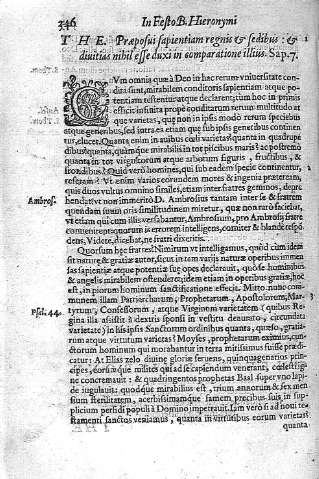 346 In Festo B. Hieronymi
T H E. Præposui sapientiam regnis & sedibus: &
divitias nihil esse duxi in comparatione illius. Sap. 7.
CVm omnia quæ à Deo in hac rerum vniversitate con-
dita sunt, mirabilem conditoris sapientiam atque po-
tentiam testentur atque declarent; tum hoc in primis
efficit infinita propè conditarum rerum multitudo at
que varietas, quæ non in ipsis modò rerum speciebus
atque generibus, sed infra es etiam quæ sub ipsis generibus continen
tur, elucet. Quanta enim in avibus coeli varietas? quanta in quadrupe
dibus? quanta, quàmque mirabilis in tot piscium maris? ac postremò
quanta in tot virgultorum atque arborum figuris, fructibus, &
frondibus? Quid verò homines, qui sub eadem specie continentur,
referam? Vt enim varia eorundem mores & ingenia præteream,
quis duos vultus omnino similes, etiam inter fratres geminos, depre
Ambros. hendat? vt non immeritò D. Ambrosius tantam inter se & fratrem
quendam suum oris similitudinem miretur, quæ non raro
vt etiam qui cum illis versabantur, Ambrosium, pro Ambrosij fratre
convenirent: quorum is errorem intelligens, comiter & blandè respō
dens, Videte, dicebat, ne fratri dixeritis.
Quorsum hęc fratres? Nimirum vt intelligamus, quòd cùm idem
sit naturę & gratiæ autor, sicut in tam varijs naturæ operibus immen
sas sapientiæ atque potentiæ suę opes declarauit, quo & hominibus
& angelis mirabilem ostenderet; idem etiam in operibus gratiæ, hoc
est, in piorum hominum sanctificatione effecit. Mitto nunc com-
munem illam Patriarcharum, Prophetarum, Apostolorum, Mar-
Psal. 44. tyrum, Confessorum, atque Virginum varietatem (quibus Re
gina illa assistit à dextris sponsi in vestitu deaurato, circundata
varietate) in his ipsis Sanctorum ordinibus quanta, quęso, gratia-
rum atque virtutum varietas? Moyses, prophetarum eximius, cun-
ctorum hominum qui morabantur in terra mitissimus fuisse prædi-
catur: At Elias zelo divinæ gloriæ fervens, quinquagenarios prin-
cipes, eorúmque milites qui ad se capiendum venerant, cœlesti ig-
ne concremauit: & quadringentos prophetas Baal super vno lapi-
de iugulauit: quodque mirabilius est, trium annorum & sex men
sium sterilitatem, acerbissimámque famem, precibus suis in sup-
plicium perfidi populi à Domino impetrauit. Iam verò si ad noui te-
stamenti sanctos veniamus, quanta in virtutibus eorum varietas
quanta